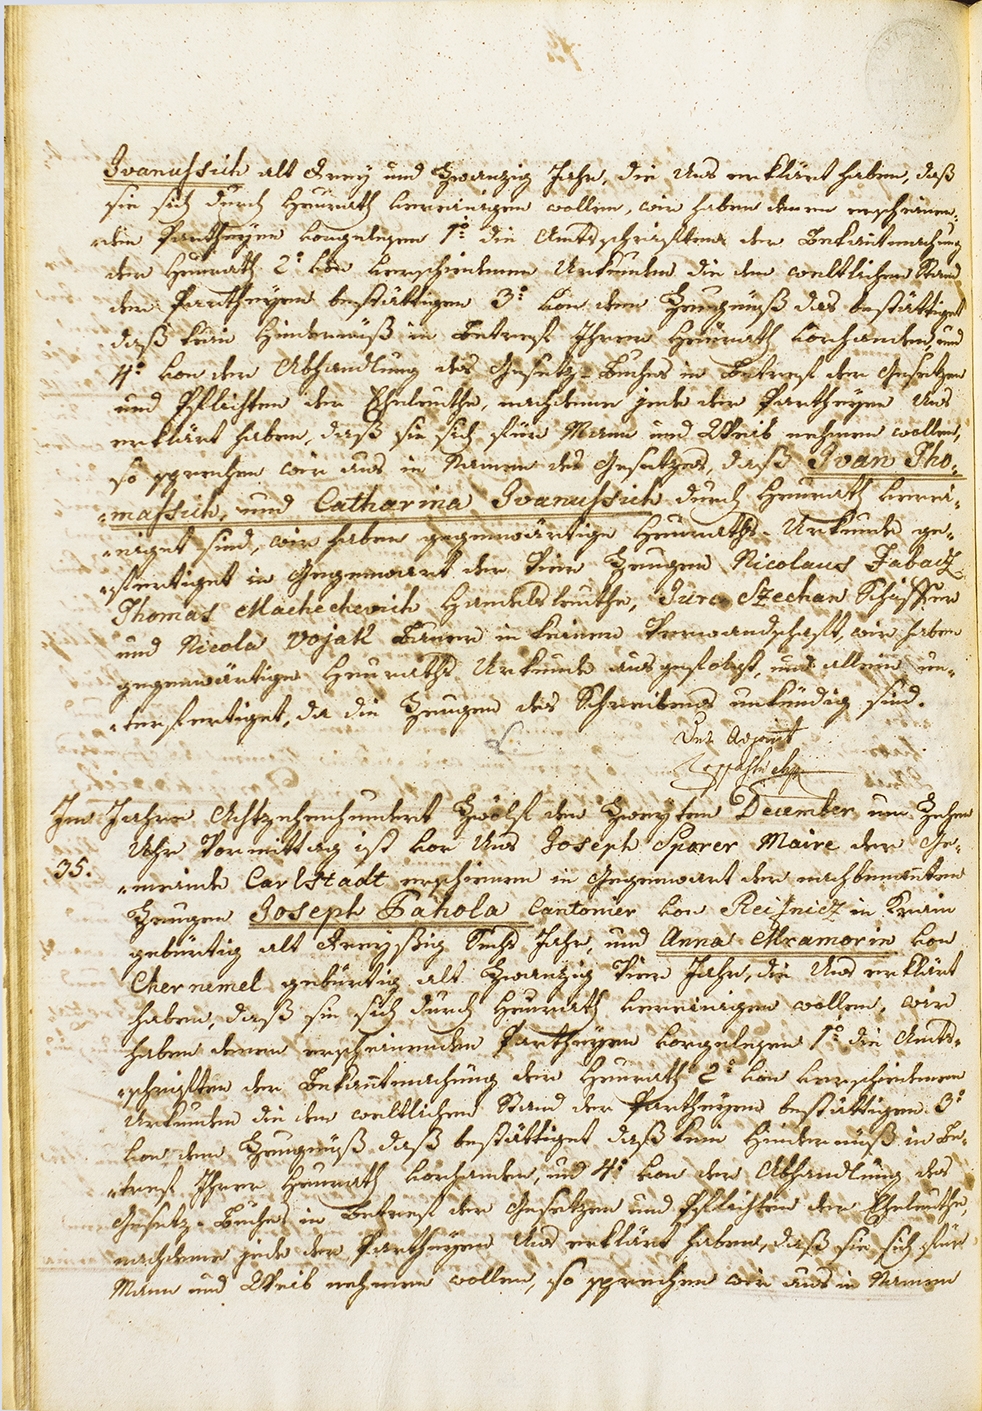 Ivanussich alt Drey und Zwanzig Jahr, die Uns erklärt haben, daß
sie sich durch Heurath vereinigen wollen, wir haben denen erscheinen-
-den Partheyen vorgelesen 1º die Amtsschriften der Bekantmachung
der Heurath 2º von verschiedenen Urkunden die den weltlichen Stand
der Partheyen bestättigen 3º von dem Zeugnüß das bestättiget
daß kein Hindernüß in Betref Ihrer Heurath vorhanden, und
4º von der Abhandlung des Gesetz-Buches in Betref der Gesetzen
und Pflichten der Eheleuthe, nachdeme jede der Partheyen Uns
erklärt haben, daß sie sich für Mann und Weib nehmen wollen,
so sprechen wir aus in Namen des Gesetzes, daß Ivan Tho-
-massich, und Catharina Ivanussich durch Heurath verei-
-niget sind, wir haben gegenwärtige Heuraths-Urkunde ge-
-fertiget in Gegenwart der Vier Zeugen Nicolaus Babacz
Thomas Machechevich Handelsleuthe, Jure Szechan Schiffer
und Nicola Vojak Bauer in keiner Verwandschaft, wir haben
gegenwärtige Heuraths Urkunde ausgefolgt, und allein un-
-terfertiget, da die Zeugen des Schreibens unkündig sind.
Der Adjunct
Im Jahre Achtzehenhundert Zwölf den Zweyten December um Zehen
35.
Uhr Vormittag ist vor Uns Joseph Sporer Maire der Ge-
-meinde Carlstadt erschienen in Gegenwart der nachbenannten
Zeugen Joseph Fahola Cantonier von Reifnicz in Krain
gebürtig alt Dreyßig Sechs Jahr, und Anna Mramorin von
Chernemel gebürtig alt Zwanzig Vier Jahr, die Uns erklärt
haben, daß sie sich durch Heurath vereinigen wollen, wir
haben denen erscheinenden Partheyen vorgelesen 1º die Amts-
-schriften der Bekantmachung der Heurath 2º von verschiedenen
Urkunden die den weltlichen Stand der Partheyen bestättigen 3º
von dem Zeugnüß daß bestättiget daß kein Hindernüß in Be-
-tref Ihrer Heurath vorhanden, und 4º von der Abhandlung des
Gesetz-Buches in Betref der Gesetzen und Pflichten der Eheleuthe,
nachdeme jede der Partheyen Uns erklärt haben, daß sie sich für
Mann und Weib nehmen wollen, so sprechen wir aus in Namen